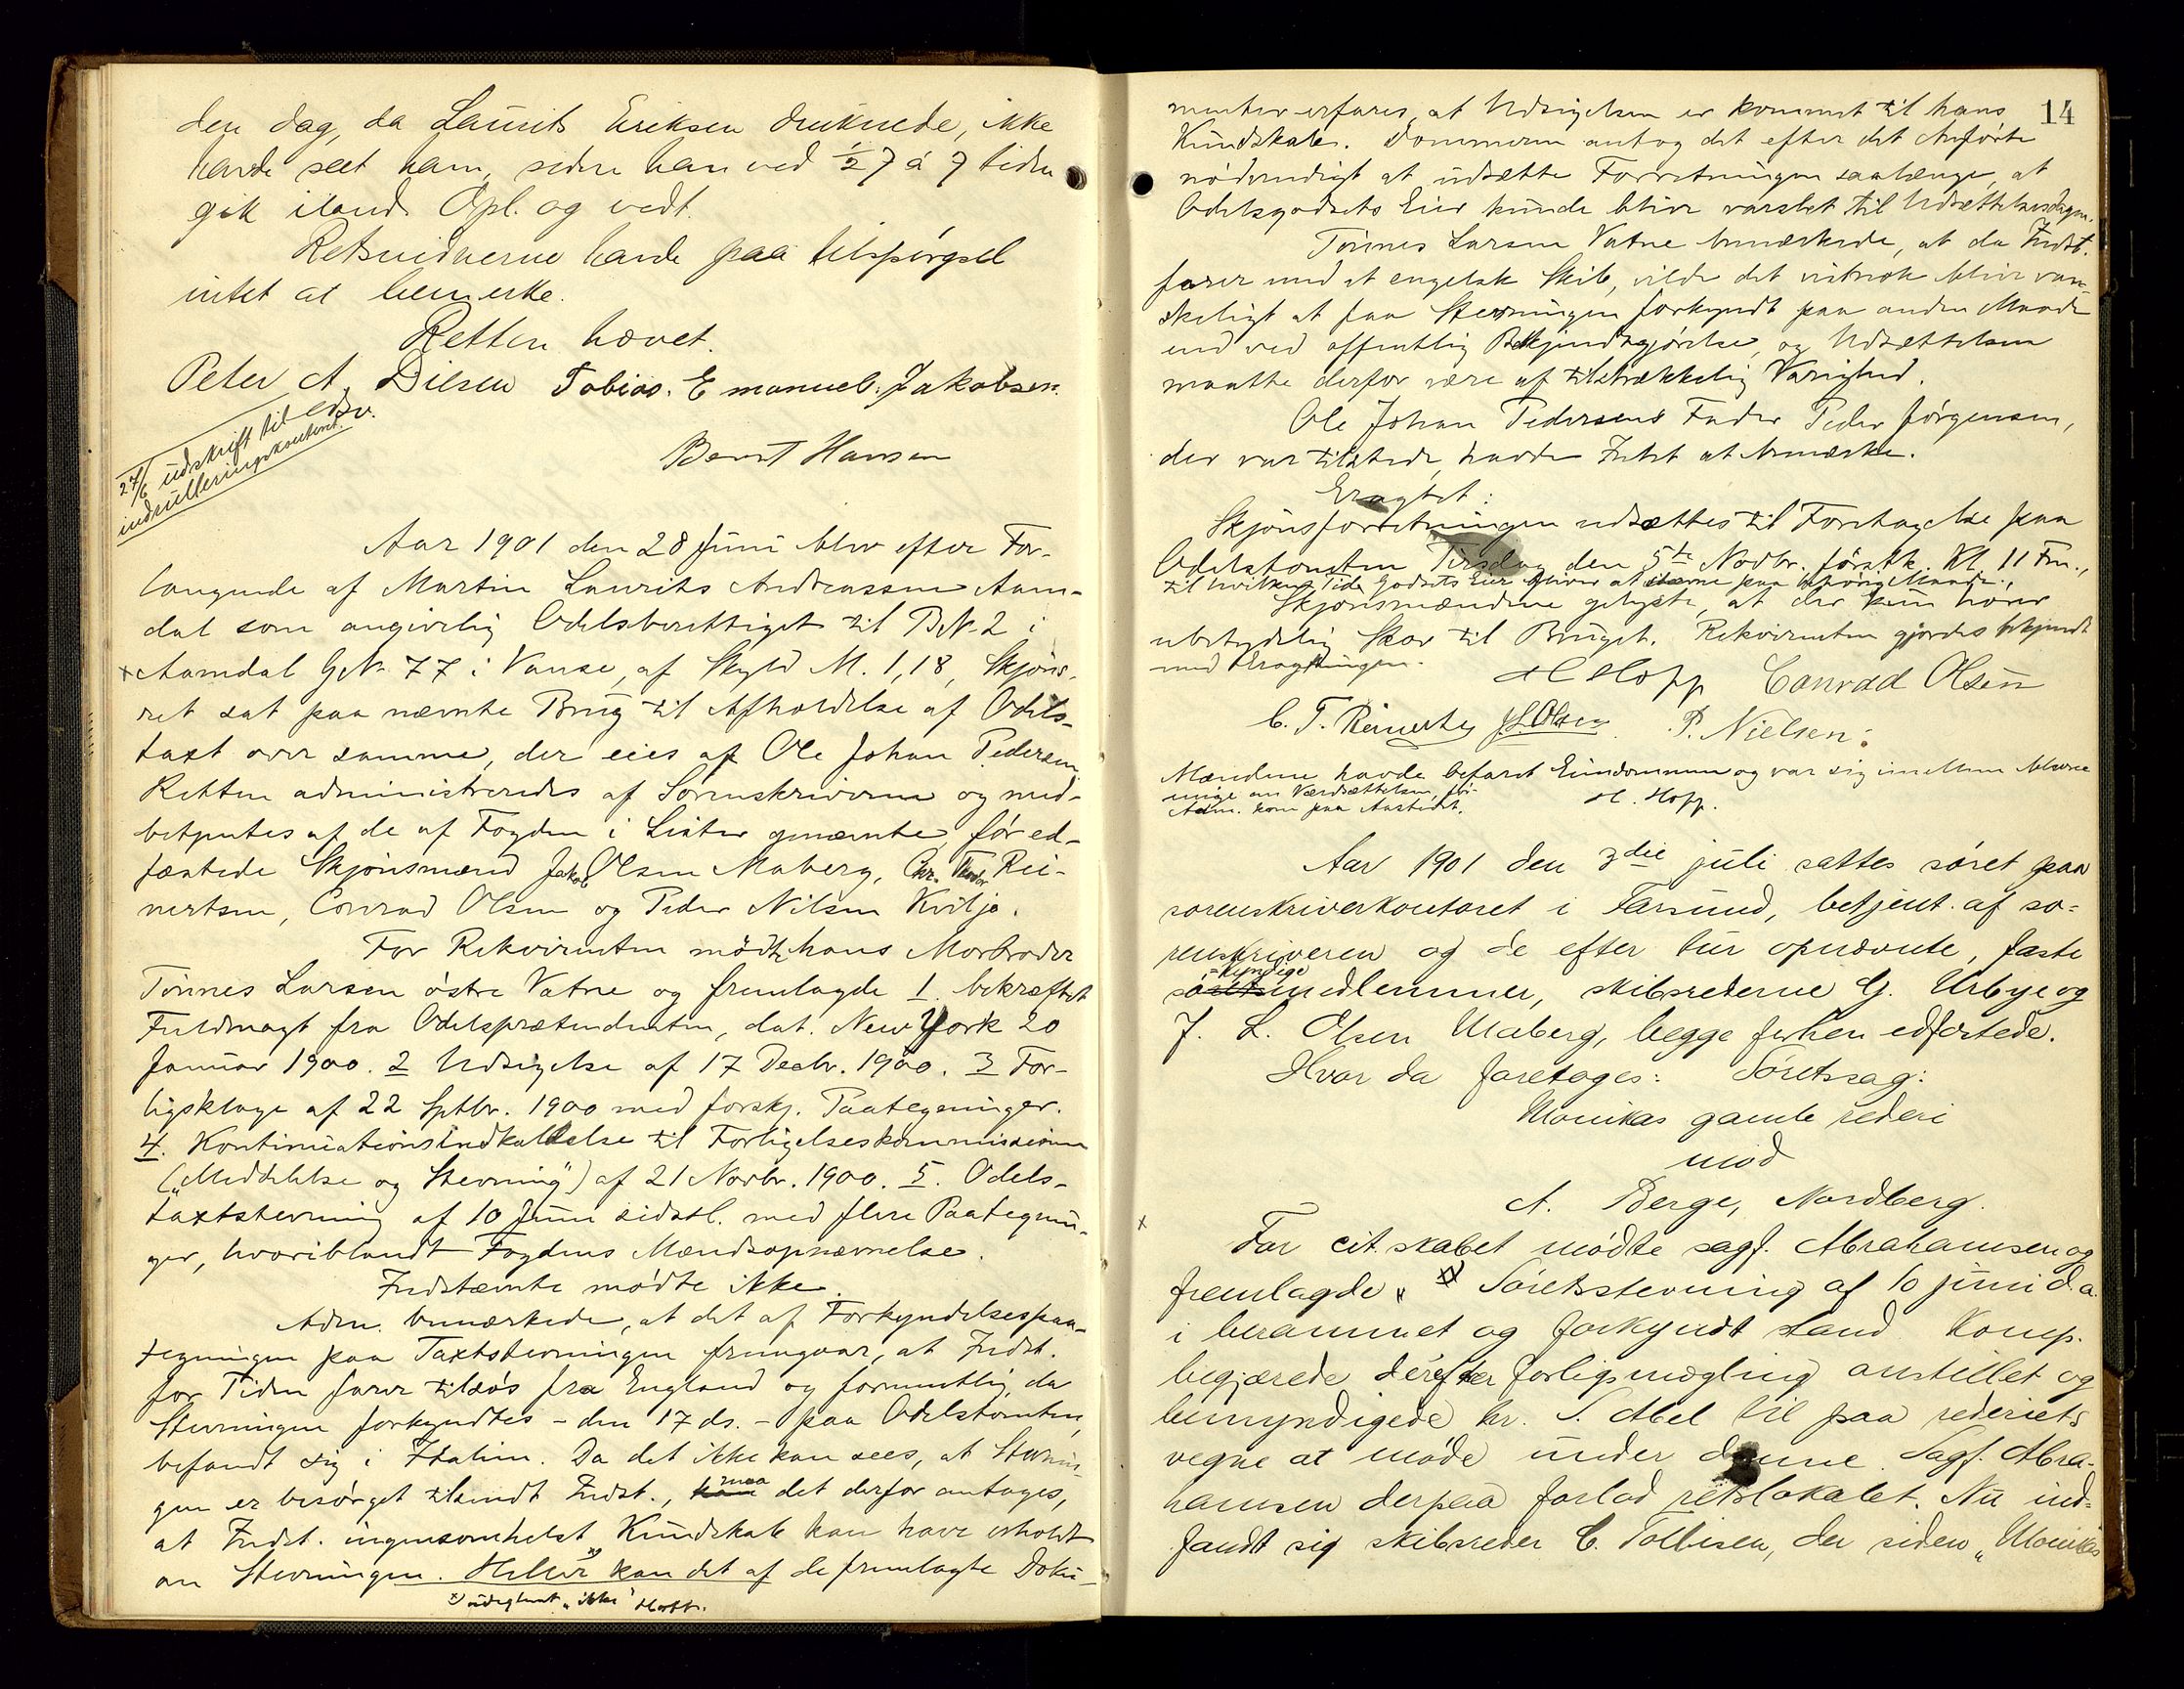 den dag, da Laurits Eriksen druknede, ikke
havde seet ham, siden han ved ½7 á 7 tiden
gik iland. Opl. og vedt.
Retsvidnerne havde paa tilspørgsel
intet at bemerke.
Retten hævet.
Peter A. Dilsen Tobias. Emanuel. Jakobsen.
27/6 udskrift til edsv.
indrulleringskontoret.
Bernt Hansen
Aar 1901 den 28 Juni blev efter For-
langende af Martin Laurits Andreassen Aam-
dal som angivelig Odelsberettiget til BN. 2 i
x Aamdal GN. 77 i Vanse, af Skyld M. 1,18, Skjøns-
ret sat paa nævnte Brug til Afholdelse af Odels-
taxt over samme, der eies af Ole Johan Pedersen.
Retten administreredes af Sorenskriveren og med-
betjentes af de af Fogden i Lister opnævnte, før ed-
fæstede Skjønsmænd Jakob Olsen Maberg, Chr. Theodor Rei-
nertsen, Conrad Olsen og Peder Nilsen Kviljo.
For Rekvirenten mødte hans Morbroder
Tønnes Larsen østre Vatne og fremlagde 1. bekræftet
Fuldmagt fra Odelsprætendenten, dat. New York 20
Januar 1900. 2 Udsigelse af 17 Decbr. 1900. 3 For-
ligsklage af 22 Sptbr. 1900 med forskj. Paategninger.
4. Kontinuationsindkaldelse til Forligelseskommissionen
(„Meddelelse og Stevning") af 21 Novbr. 1900. 5. Odels-
taxtstevning af 10 Juni sidstl. med flere Paategnin-
ger, hvoriblandt Fogdens Mændsopnævnelse.
Indstævnte mødte ikke.
Adm. bemærkede, at det af Forkyndelsespaa-
tegningen paa Taxtstevningen fremgaar, at Indst.
for Tiden farer tilsøs fra England og formentlig, da
Stevningen forkyndtes – den 17 ds. – paa Odelstomten,
befandt sig i Italien. Da det ikke kan sees, at Stevnin-
gen er besørget tilsendt Indst., maa det derfor antages,
at Indst. ingensomhelst Kundskab kan have erholdt
om Stevningen. Heller x) kan det af de fremlagte Doku-
x) udeglemt „ikke" Hopp.
14
menter erfares, at Udsigelsen er kommet til hans
Kundskab. Dommeren antog det efter det Anførte
nødvendigt at udsætte Forretningen saalænge, at
Odelsgodsets Eier kunde blive varslet til Udsættelsesdagen.
Tønnes Larsen Vatne bemærkede, at da Indst.
farer med et engelsk Skib, vilde det vistnok blive van-
skeligt at faa Stevningen forkyndt paa anden Maade
end ved offentlig Bekjendtgjørelse, og Udsættelsen
maatte derfor være af tilstrækkelig Varighed.
Ole Johan Pedersens Fader Peder Jørgensen,
der var tilstede, havde Intet at bemærke.
Eragtet:
Skjønsforretningen udsættes til Foretagelse paa
Odelstomten Tirsdag den 5te Novbr. førstk. Kl. 11 Fm.,
til hvilken Tid Godsets Eier bliver at stævne paa behørig Maade.
Skjønsmændene oplyste, at der kun hører
ubetydelig Skov til Bruget. Rekvirenten gjordes bekjendt
med Eragtningen.
H Hopp Conrad Olsen
C. T. Reinertsen J. L. Olsen P. Nielsen.
Mændene havde befaret Eiendommen og var sig imellem blevne
enige om Værdsættelsen, før
Adm. kom paa Aastedet. H. Hopp.
Aar 1901 den 3die juli sattes søret paa
sorenskriverkontoret i Farsund, betjent af so-
renskriveren og de efter tur opnævnte, faste
-kyndige
sø medlemmer, skibsrederne G. Urbye og
J. L. Olsen Maberg, begge forhen edfæstede.
Hvor da foretoges: Søretssag:
Monikas gamle rederi
mod
A. Berge, Nordberg.
x
For cit.skabet mødte sagf. Abrahamsen og
fremlagde Søretsstevning af 10 juni d.a.
i berammet og forkyndt stand. Komp.
begjærede derefter forligsmægling anstillet og
bemyndigede hr. S. Abel til paa rederiets
vegne at møde under denne. Sagf. Abra-
hamsen derpaa forlod retslokalet. Nu ind-
fandt sig skibsreder C. Tobisen, der siden „Monikas